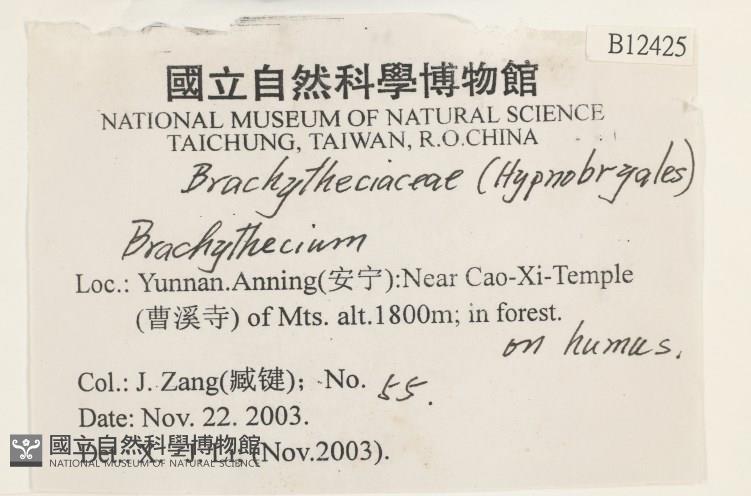 B12425
國立自然科學博物館
NATIONAL MUSEUM OF NATURAL SCIENCE
TAICHUNG, TAIWAN, R.O.CHINA
Brachytheciaceae (Hypnobryales)
Brachythecium
Loc.: Yunnan.Anning(安宁):Near Cao-Xi-Temple
(曹溪寺) of Mts. alt.1800m; in forest.
on humus.
Col.: J. Zang(臧键); No. 55.
Date: Nov. 22. 2003.
Det.: X. -J. Li. (Nov.2003).
國立自然科學博物館
NATIONAL MUSEUM OF NATURAL SCIENCE